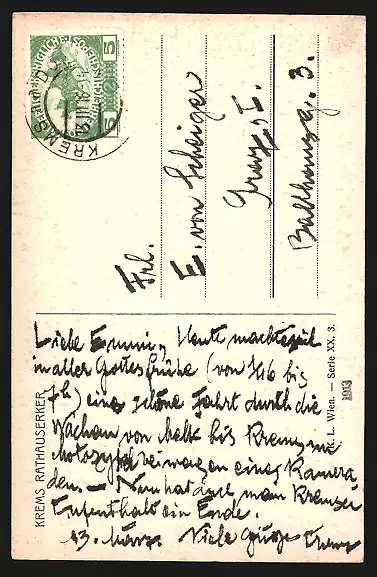 KREMS a. d. D.
5
Frl.
E. von Scheiger
Graz, I.
Ballhausg. 3.
Liebe Emmi, Heute machte ich
in aller Gottesfrühe (von 1/4 6 bis
7h) eine schöne Fahrt durch die
Wachau von Melk bis Krems im
Motozyklbeiwagen eines Kamera
den. — Nun hat auch mein Kremser
Aufenthalt ein Ende.
13. März. Viele Grüße
KREMS RATHAUSERKER
K. L. Wien. — Serie XX. 3.
1913